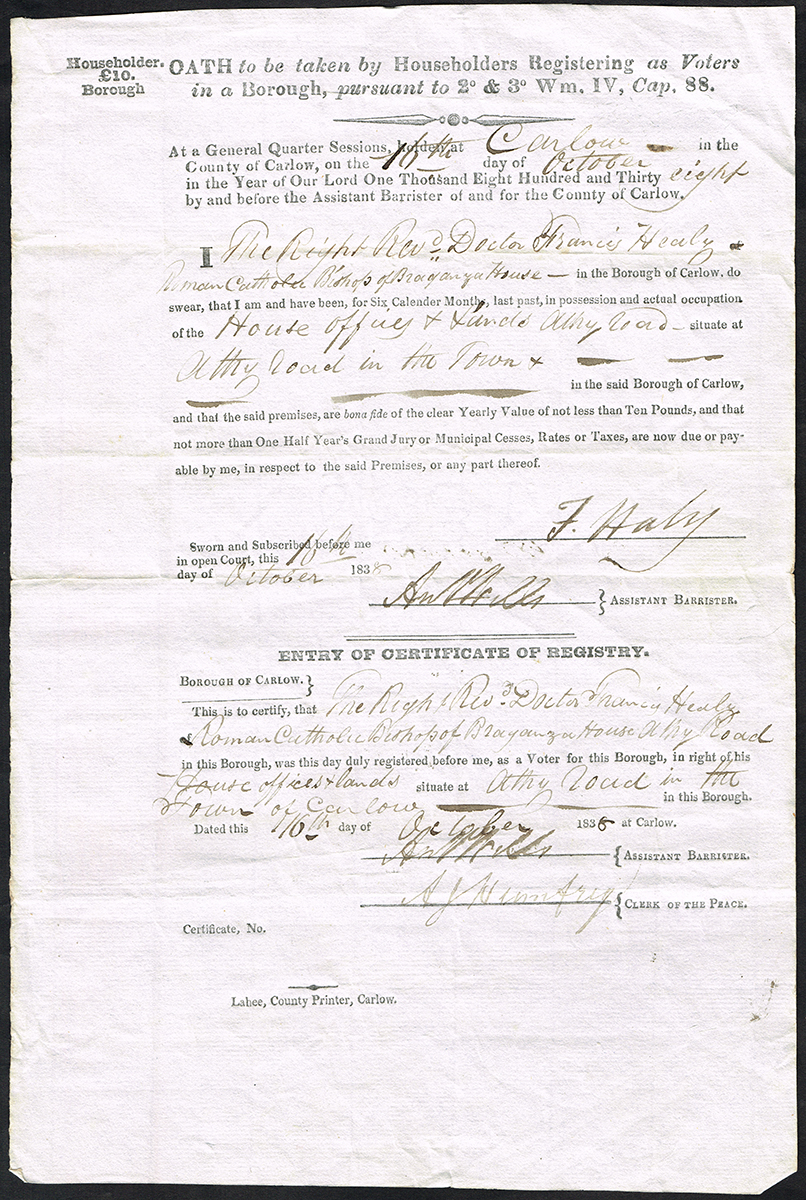 Householder.
£10.
Borough
OATH to be taken by Householders Registering as Voters
in a Borough, pursuant to 2º & 3º Wm. IV, Cap. 88.
At a General Quarter Sessions, holden at Carlow in the
County of Carlow, on the 16th day of October
in the Year of Our Lord One Thousand Eight Hundred and Thirty eight
by and before the Assistant Barrister of and for the County of Carlow.
I The Right Revd. Doctor Francis Healy
Roman Catholic Bishop of Braganza House — in the Borough of Carlow, do
swear, that I am and have been, for Six Calender Months, last past, in possession and actual occupation
of the House offices & Lands Athy Road — situate at
Athy Road in the Town &
in the said Borough of Carlow,
and that the said premises, are bona fide of the clear Yearly Value of not less than Ten Pounds, and that
not more than One Half Year's Grand Jury or Municipal Cesses, Rates or Taxes, are now due or pay-
able by me, in respect to the said Premises, or any part thereof.
F. Haly
Sworn and Subscribed before me
in open Court, this 16th
day of October 1838
ASSISTANT BARRISTER.
ENTRY OF CERTIFICATE OF REGISTRY.
BOROUGH OF CARLOW.
This is to certify, that The Right Revd. Doctor Francis Healy
Roman Catholic Bishop of Braganza House Athy Road
in this Borough, was this day duly registered before me, as a Voter for this Borough, in right of his
House offices & lands situate at Athy Road in the
Town of Carlow in this Borough.
Dated this 16th day of October 1838 at Carlow.
ASSISTANT BARRISTER.
A J Humfrey CLERK OF THE PEACE.
Certificate, No.
Lahee, County Printer, Carlow.